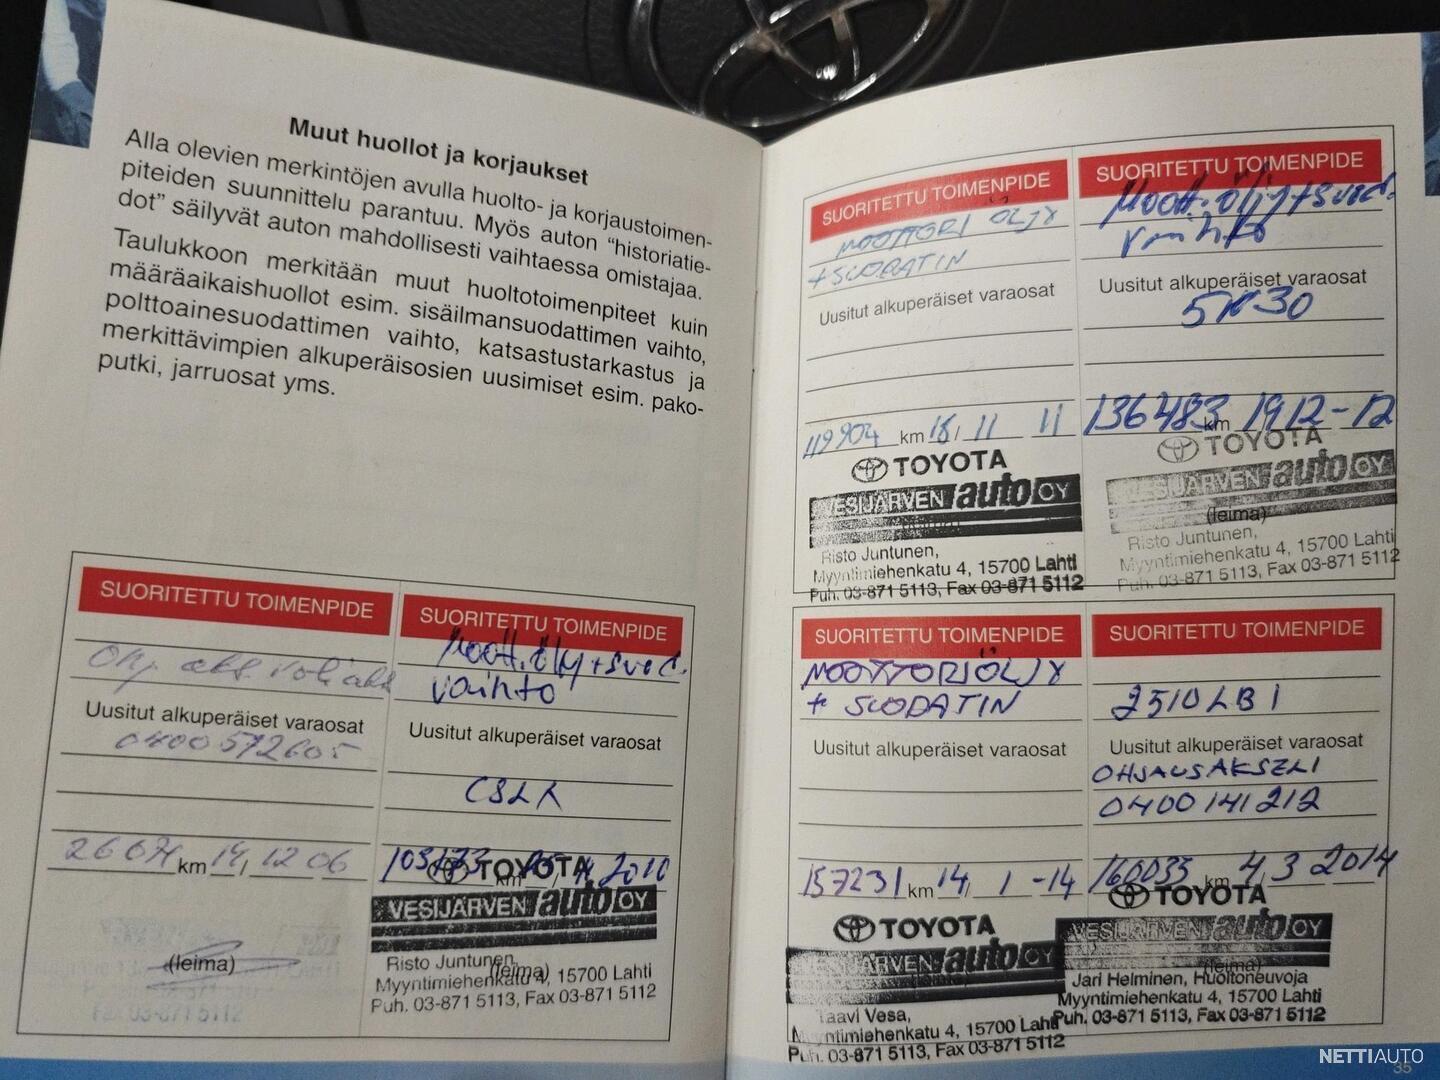 Muut huollot ja korjaukset
Alla olevien merkintöjen avulla huolto- ja korjaustoimen-
piteiden suunnittelu parantuu. Myös auton “historiatie-
dot” säilyvät auton mahdollisesti vaihtaessa omistajaa.
Taulukkoon merkitään muut huoltotoimenpiteet kuin
määräaikaishuollot esim. sisäilmansuodattimen vaihto,
polttoainesuodattimen vaihto, katsastustarkastus ja
merkittävimpien alkuperäisosien uusimiset esim. pako-
putki, jarruosat yms.
SUORITETTU TOIMENPIDE
Uusitut alkuperäiset varaosat
0400572605
km 19, 12 06
(leima)
SUORITETTU TOIMENPIDE
Moott.öljy+suod.
vaihto
Uusitut alkuperäiset varaosat
km 2010
TOYOTA
VESIJÄRVEN auto OY
Risto Juntunen,
(leima)
Myyntimiehenkatu 4, 15700 Lahti
Puh. 03-871 5113, Fax 03-871 5112
SUORITETTU TOIMENPIDE
MOOTTORI ÖLJY
+ SUODATIN
Uusitut alkuperäiset varaosat
119904 km 18/ 11 11
TOYOTA
VESIJÄRVEN auto OY
(leima)
Risto Juntunen,
Myyntimiehenkatu 4, 15700 Lahti
Puh. 03-871 5113, Fax 03-871 5112
SUORITETTU TOIMENPIDE
Moott.öljy+suod.
vaihto
Uusitut alkuperäiset varaosat
5W30
136483 km 19 12-12
TOYOTA
VESIJÄRVEN auto OY
(leima)
Risto Juntunen,
Myyntimiehenkatu 4, 15700 Lahti
Puh. 03-871 5113, Fax 03-871 5112
SUORITETTU TOIMENPIDE
MOOTTORIÖLJY
+ SUODATIN
Uusitut alkuperäiset varaosat
157231 km 14, 1 -14
TOYOTA
VESIJÄRVEN auto OY
Taavi Vesa,
Myyntimiehenkatu 4, 15700 Lahti
Puh. 03-871 5113, Fax 03-871 5112
SUORITETTU TOIMENPIDE
2510LB1
Uusitut alkuperäiset varaosat
OHJAUSAKSELI
0400141212
160035 km 4,3 2014
TOYOTA
VESIJÄRVEN auto OY
(leima)
Jari Helminen, Huoltoneuvoja
Myyntimiehenkatu 4, 15700 Lahti
Puh. 03-871 5113, Fax 03-871 5112
35
NETTIAUTO